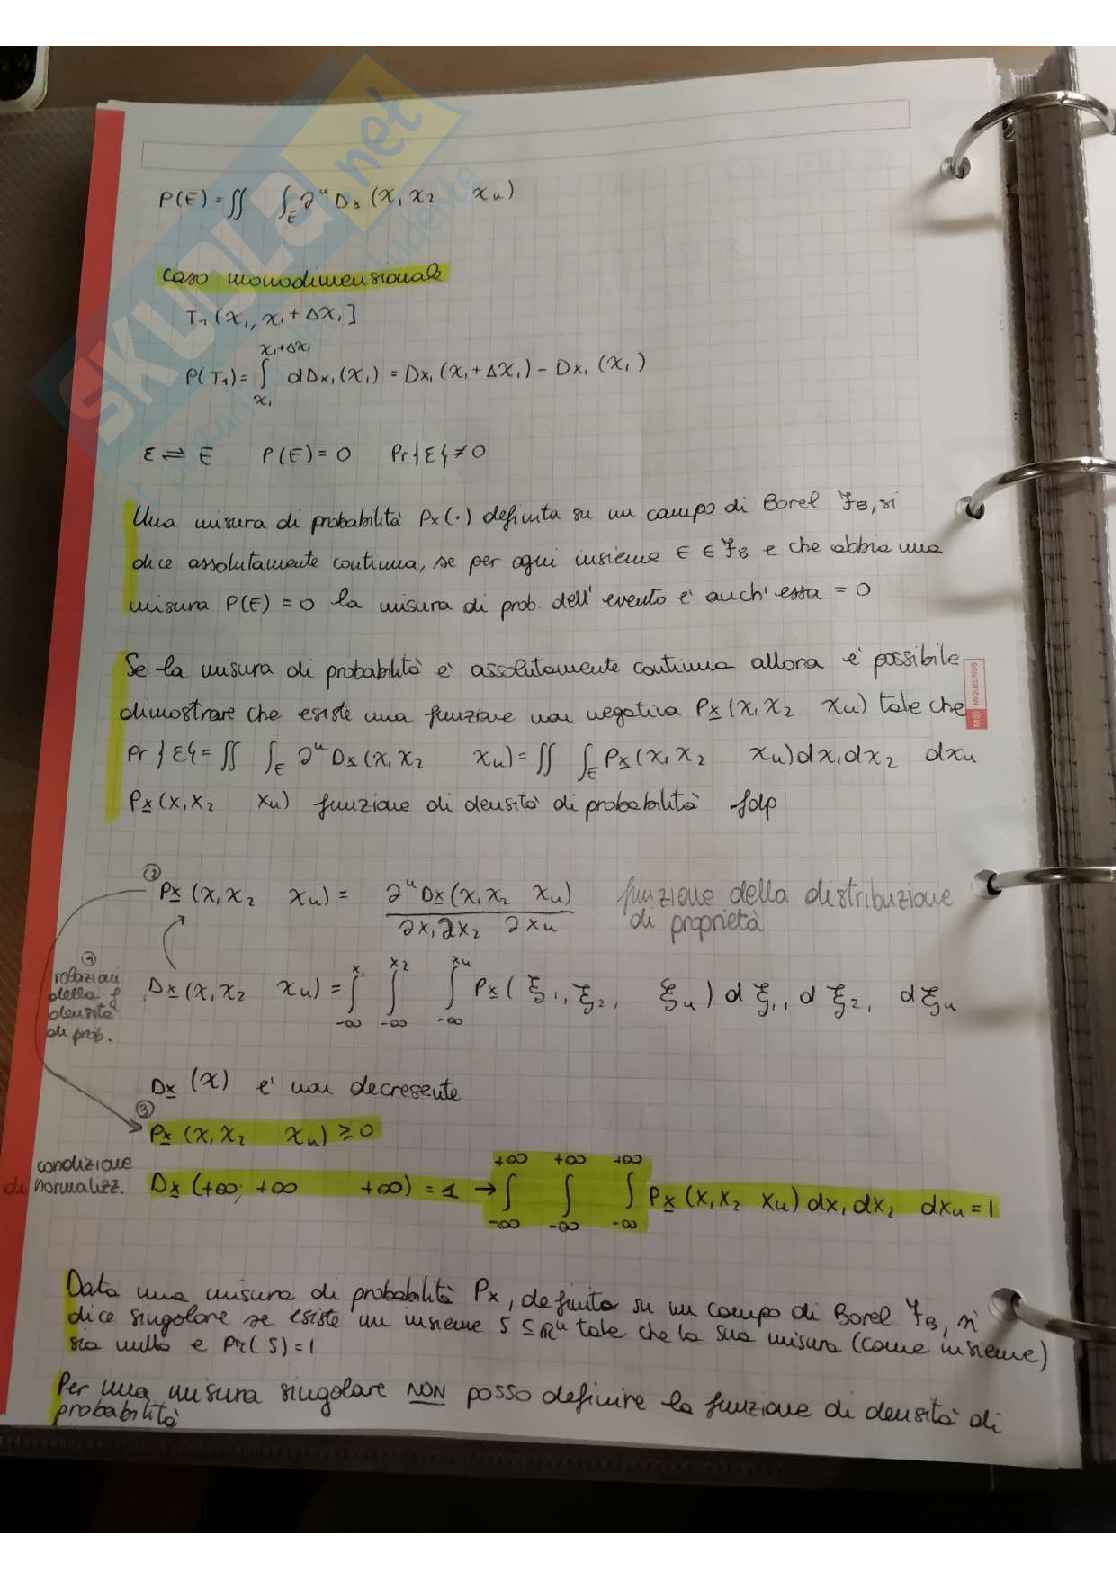 SKUOLA.net
P(E) = ∬ ∫_E ∂ⁿ D_x (x₁ x₂ xₙ)
caso monodimensionale
T₁ (x₁, x₁ + Δx₁]
P(T₁) = ∫_{x₁}^{x₁+Δx₁} dD_{x₁}(x₁) = D_{x₁}(x₁ + Δx₁) - D_{x₁}(x₁)
ε ⇌ E P(E) = 0 Pr{E} ≠ 0
Una misura di probabilità Pₓ(·) definita su un campo di Borel ℱ_B, si
dice assolutamente continua, se per ogni insieme E ∈ ℱ_B e che abbia una
misura P(E) = 0 la misura di prob. dell' evento è anch' essa = 0
Se la misura di probabilità è assolutamente continua allora è possibile
dimostrare che esiste una funzione non negativa P_x (x₁ x₂ xₙ) tale che
Pr{E} = ∬ ∫_E ∂ⁿ D_x (x₁ x₂ xₙ) = ∬ ∫_E P_x (x₁ x₂ xₙ) dx₁ dx₂ dxₙ
P_x (x₁ x₂ xₙ) funzione di densità di probabilità fdp
② P_x (x₁ x₂ xₙ) = ∂ⁿ D_x (x₁ x₂ xₙ) / ∂x₁ ∂x₂ ∂xₙ funzione della distribuzione
di proprietà
relazioni
della f
densità
di prob.
D_x (x₁ x₂ xₙ) = ∫_{-∞}^{x₁} ∫_{-∞}^{x₂} ∫_{-∞}^{xₙ} P_x (ξ₁, ξ₂, ξₙ) dξ₁, dξ₂, dξₙ
D_x (x) è non decresente
③
P_x (x₁ x₂ xₙ) ≥ 0
condizione
di normalizz.
D_x (+∞, +∞ +∞) = 1 → ∫_{-∞}^{+∞} ∫_{-∞}^{+∞} ∫_{-∞}^{+∞} P_x (x₁ x₂ xₙ) dx₁ dx₂ dxₙ = 1
Data una misura di probabilità Pₓ, definita su un campo di Borel ℱ_B, si
dice singolare se esiste un insieme S ⊆ ℝⁿ tale che la sua misura (come insieme)
sia nulla e Pr(S) = 1
Per una misura singolare NON posso definire la funzione di densità di
probabilità